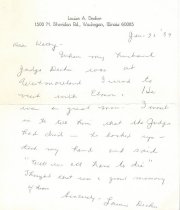 Louise A. Decker
1500 N. Sheridan Rd., Waukegan, Illinois 60085
Jan. 21 '89
Dear
When my husband
Judge Decker was at
I used to
visit with He
was a great man. I went
in to tell him that the Judge
had died - He looked up -
dist my hand and said
"Well we all have to die"
Thought that was a great memory
of him
Sincerely - Louise Decker